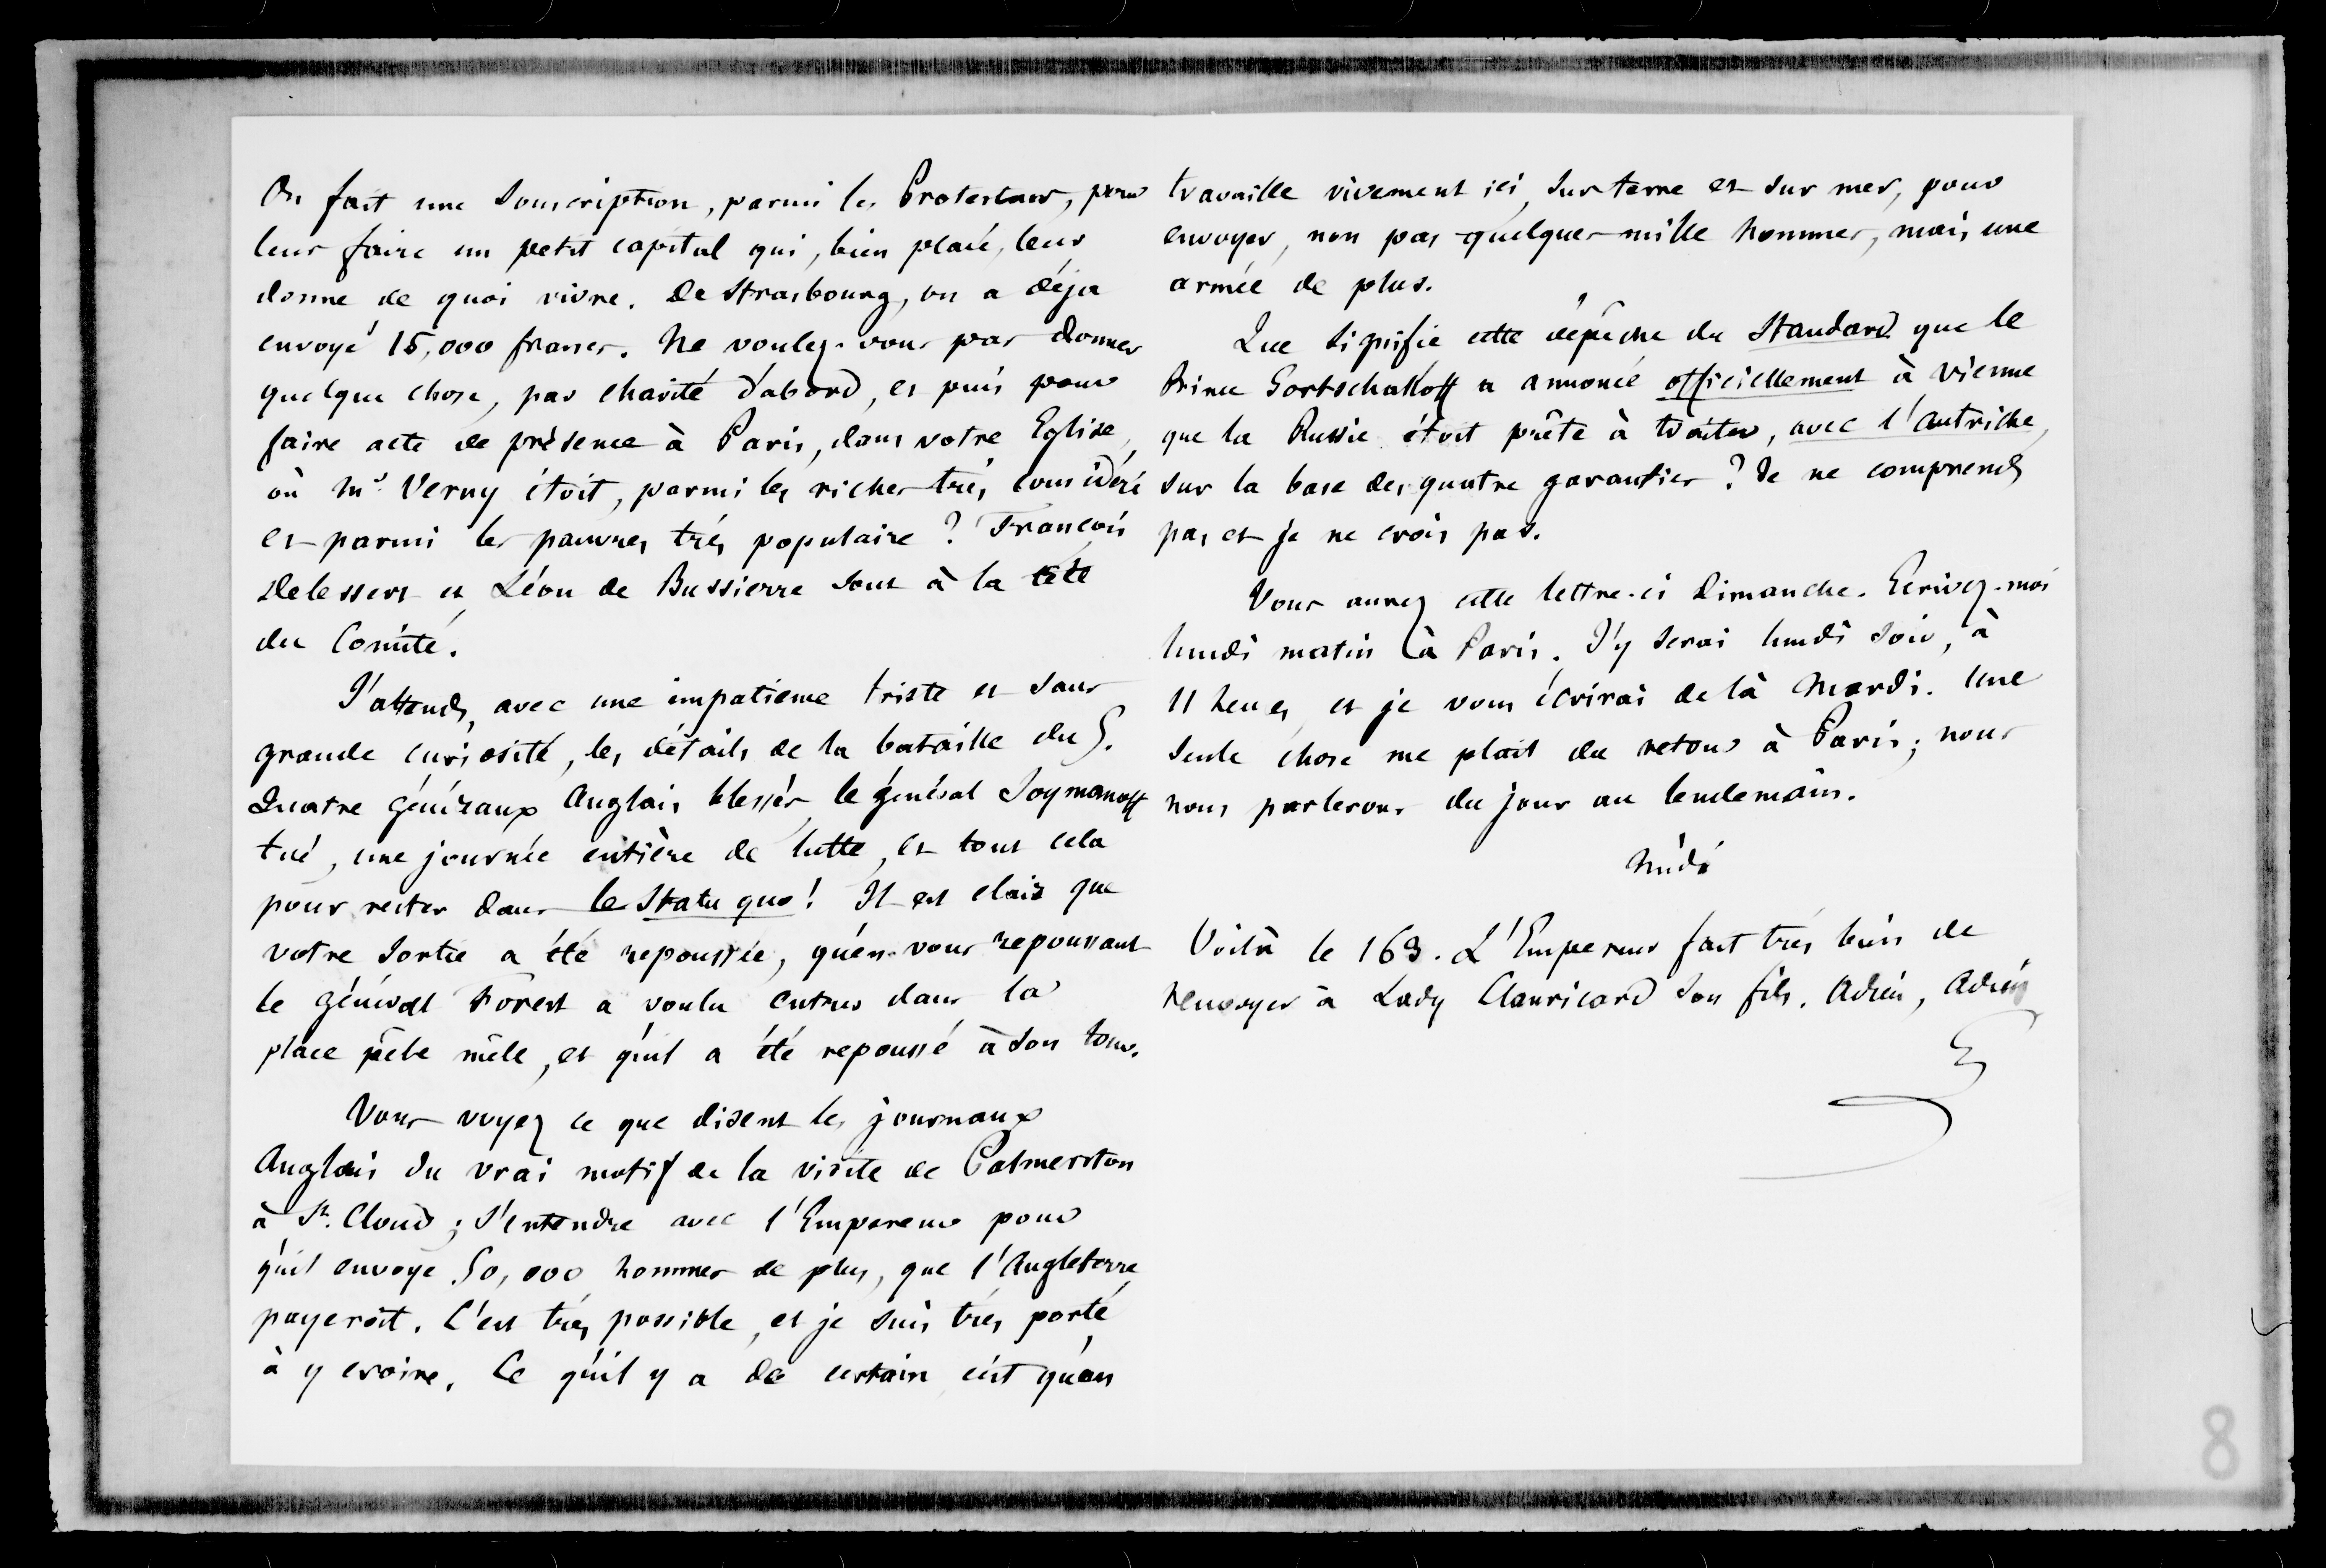 On fait une Souscription, parmi les Protestans, pour
leur faire un petit capital qui, bien placé, leur
donne de quoi vivre. De Strasbourg, on a déja
envoyé 15,000 francs. Ne voulez-vous pas donner
quelque chose, par charité d'abord, et puis pour
faire acte de présence à Paris, dans votre Eglise,
où Mr. Verny étoit, parmi les riches très considéré
et parmi les pauvres très populaire ? François
Delessert et Léon de Bussierre sont à la tête
du Comité.
J'attends, avec une impatience triste et sans
grande curiosité, les détails de la bataille du 5.
Quatre généraux Anglais blessés, le général Soymanoff
tué, une journée entière de lutte, et tout cela
pour rester dans le Statu quo ! Il est clair que
votre Sortie a été repoussée, qu'en vous repoussant
le général Forest a voulu entrer dans la
place pêle mêle, et qu'il a été repoussé à son tour.
Vous voyez ce que disent les journaux
Anglais du vrai motif de la visite de Palmerston
à St. Cloud ; S'entendre avec l'Empereur pour
qu'il envoye 50,000 hommes de plus, que l'Angleterre
payeroit. C'est très possible, et je suis très porté
à y croire. Ce qu'il y a de certain c'est qu'on
travaille vivement ici, sur terre et sur mer, pour
envoyer, non pas quelques mille hommes, mais une
armée de plus.
Que signifie cette dépêche du Standard que le
Prince Gortschakoff a annoncé officiellement à Vienne
que la Russie étoit prête à traiter, avec l'Autriche,
sur la base des quatre garanties ? Je ne comprends
pas et je ne crois pas.
Vous aurez cette lettre-ci Dimanche. Ecrivez-moi
lundi matin à Paris. J'y serai lundi soir, à
11 heures, et je vous écrirai de là Mardi. Une
seule chose me plait du retour à Paris ; nous
nous parlerons du jour au lendemain.
Midi
Voilà le 163. L'Empereur fait très bien de
renvoyer à Lady Clanricard son fils. Adieu, Adieu
G
8